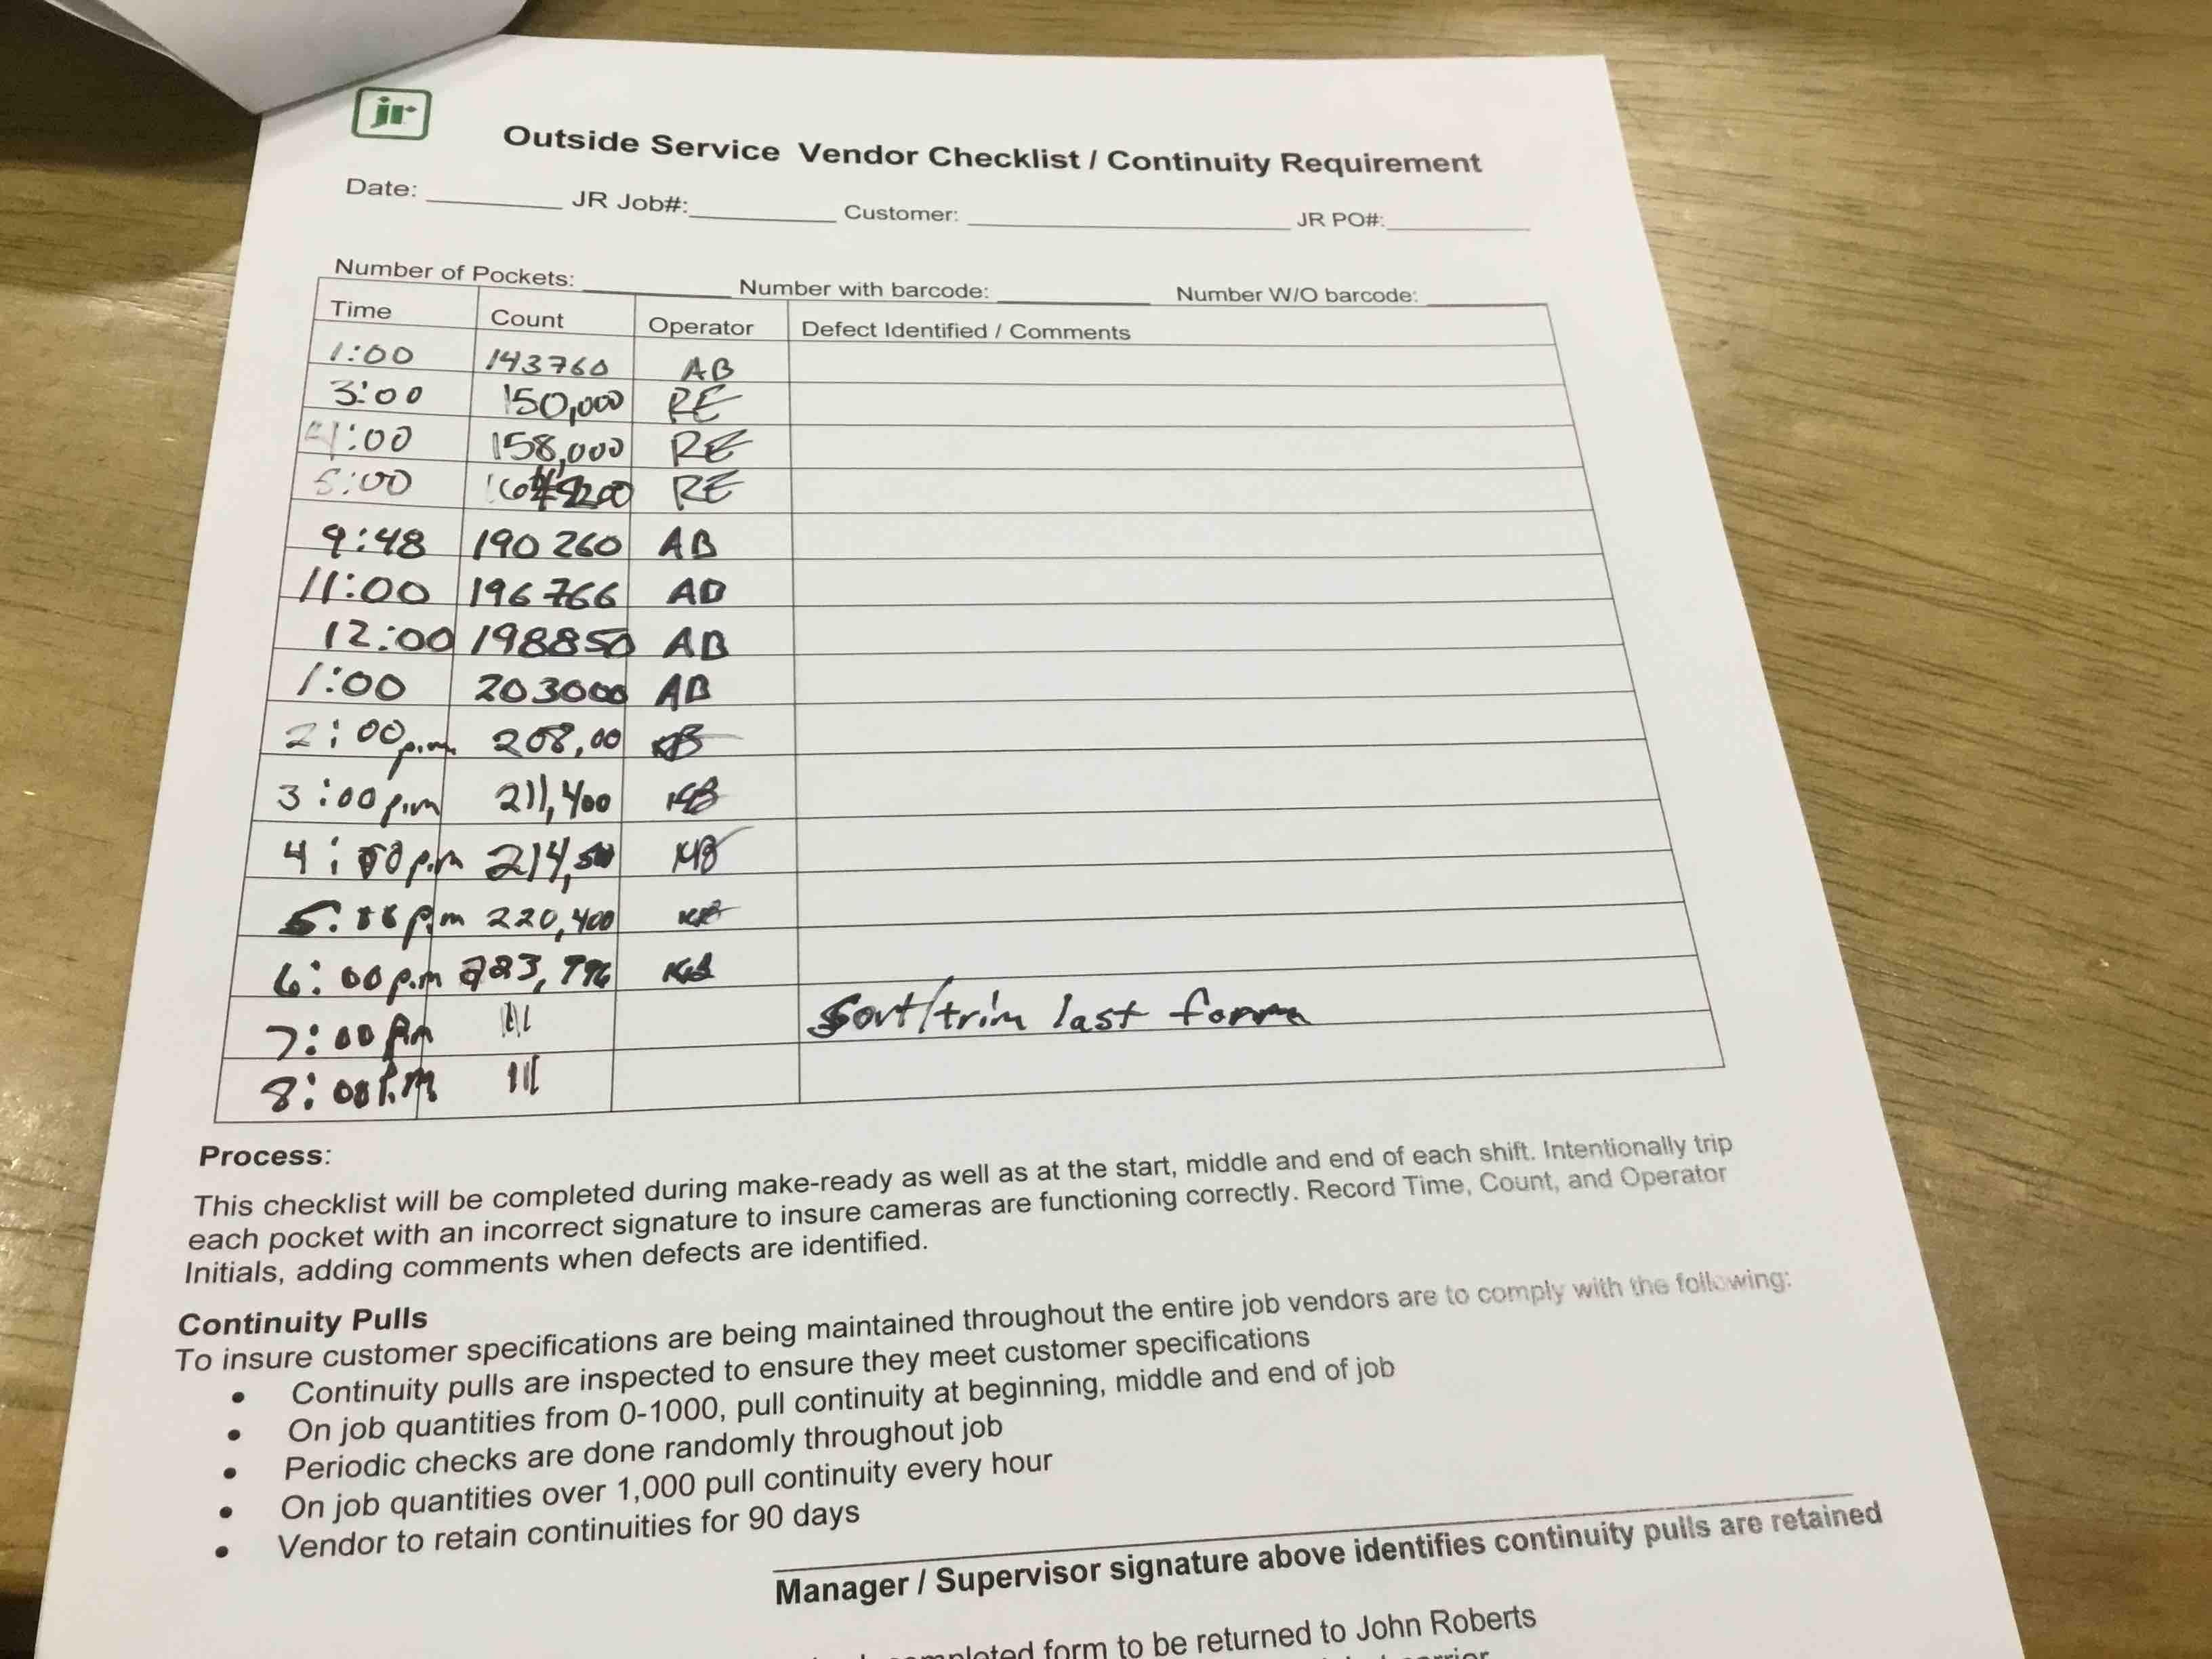 jr
Outside Service Vendor Checklist / Continuity Requirement
Date: JR Job#: Customer: JR PO#:
Number of Pockets: Number with barcode: Number W/O barcode:
Time Count Operator Defect Identified / Comments
1:00 143760 AB
3:00 150,000 RE
4:00 158,000 RE
5:00 RE
9:48 190 260 AB
11:00 196 766 AB
12:00 198850 AB
1:00 203000 AB
2:00 p.m. 208,00 KB
3:00 p.m 211,400 KB
4:00 p.m 214, KB
5:00 p.m 220,400 KB
6:00 p.m 223,796 KB
7:00 Pm Sort/trim last form
8:00 P.M
Process:
This checklist will be completed during make-ready as well as at the start, middle and end of each shift. Intentionally trip
each pocket with an incorrect signature to insure cameras are functioning correctly. Record Time, Count, and Operator
Initials, adding comments when defects are identified.
Continuity Pulls
To insure customer specifications are being maintained throughout the entire job vendors are to comply with the following:
• Continuity pulls are inspected to ensure they meet customer specifications
• On job quantities from 0-1000, pull continuity at beginning, middle and end of job
• Periodic checks are done randomly throughout job
• On job quantities over 1,000 pull continuity every hour
• Vendor to retain continuities for 90 days
Manager / Supervisor signature above identifies continuity pulls are retained
form to be returned to John Roberts